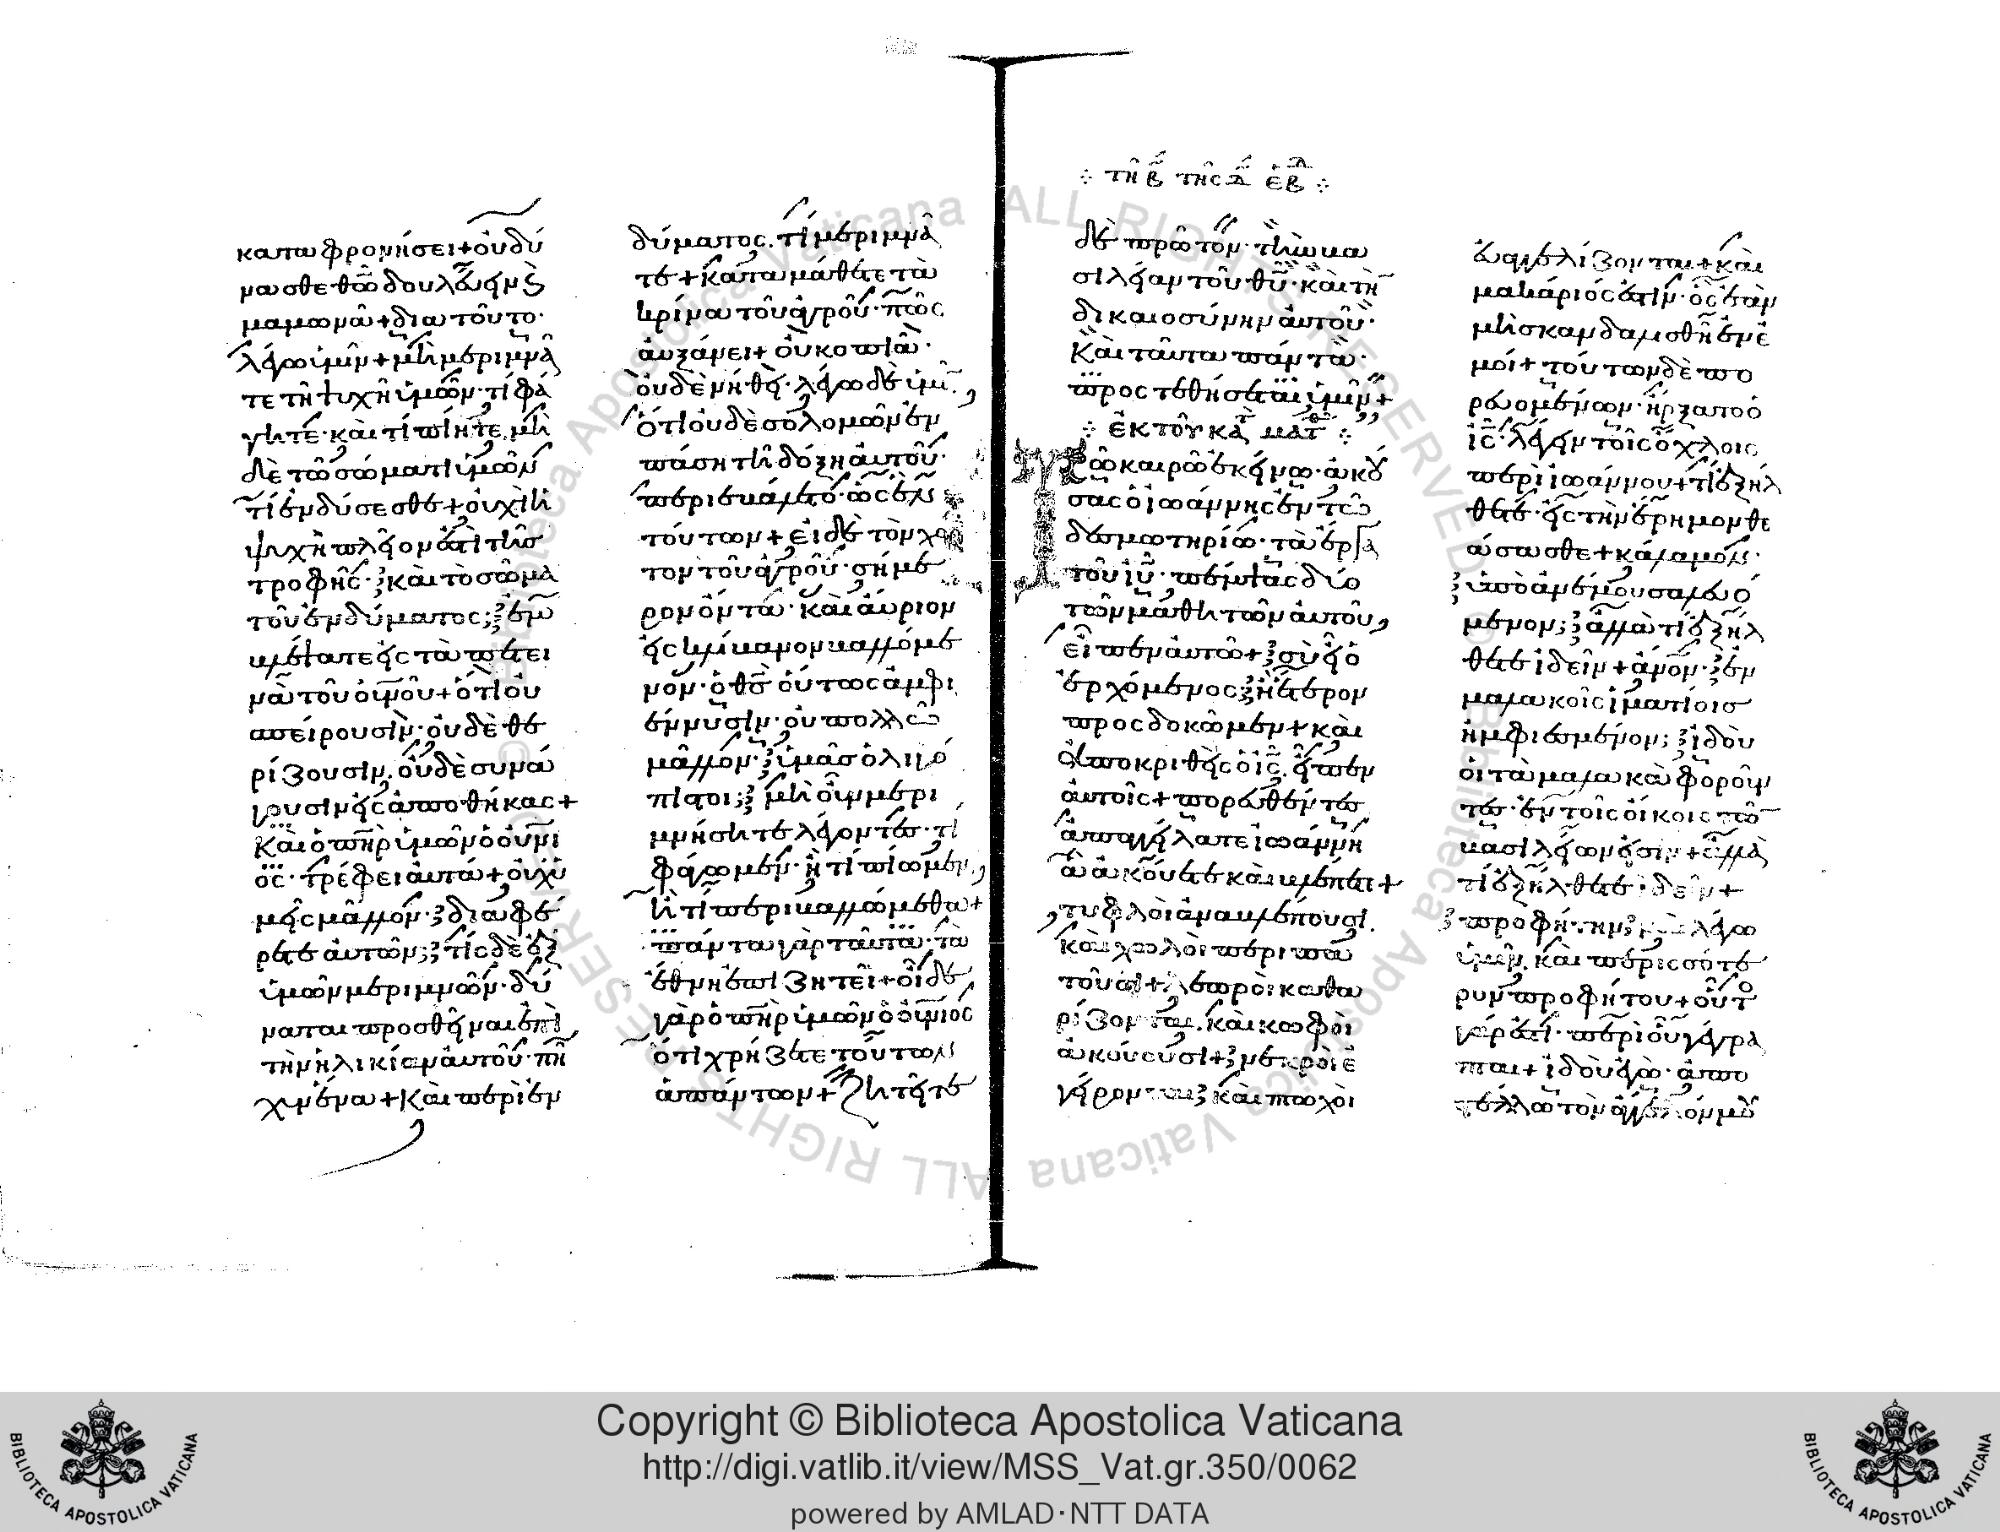 καταφρονήσει+ οὐ δύ
νασθε θῶ δουλεύειν ϗ
μαμωνᾶ+ διὰ τοῦτο·
λέγω ὑμῖν+ μὴ μεριμνᾶ
τε τῆ ψυχῆ ὑμῶν· τί φά
γητε· καὶ τί πίητε, μὴ
δὲ τῶ σώματι ὑμῶν
τί ἐνδύσεσθε+ οὐχὶ ἡ
ψυχὴ πλεῖον ἐστὶ τῆς
τροφῆς· καὶ τὸ σῶμα
τοῦ ἐνδύματος; ἐμ
βλέψατε εἰς τὰ πετει
νὰ τοῦ οὐνοῦ+ ὅτι οὐ
σπείρουσιν· οὐδὲ θε
ρίζουσιν. οὐδὲ συνά
γουσιν εἰς ἀποθήκας+
Καὶ ὁ πηρ ὑμῶν ὁ οὐνι
ος· τρέφει αὐτά+ οὐχ ὑ
μεῖς μᾶλλον· διαφέ
ρετε αὐτῶν; τίς δὲ ἐξ
ὑμῶν μεριμνῶν· δύ
ναται προσθεῖναι ἐπὶ
τὴν ἡλικίαν αὐτοῦ· πῆ
χυν ἕνα+ Καὶ περὶ ἐν
δύματος. τί μεριμνᾶ
τε+ καταμάθετε τὰ
κρίνα τοῦ ἀγροῦ· πῶς
αὐξάνει+ οὐ κοπιᾶ·
οὐδὲ νήθει· λέγω δὲ ὑμῖν,
ὅτι οὐδὲ σολομῶν ἐν
πάση τῆ δόξη αὐτοῦ·
περιεβάλετο· ὡς ἓν
τούτων+ εἰ δὲ τὸν χόρ
τον τοῦ ἀγροῦ· σήμε
ρον ὄντα· καὶ αὔριον
εἰς κλίβανον βαλλόμε
νον· ὁ θς οὕτως ἀμφι
έννυσιν· οὐ πολλῶ
μᾶλλον· ὑμᾶς ὀλιγό
πιστοι; μὴ οὖν μερι
μνήσητε λέγοντες· τί
φάγωμεν· ἢ τί πίωμεν,
ἢ τί περιβαλλώμεθα+
πάντα γὰρ ταῦτα· τὰ
ἔθνη ἐπιζητεῖ+ οἶδε
γὰρ ὁ πηρ ὑμῶν ὁ οὐνιος
ὅτι χρήζετε τούτων
ἁπάντων+ ζητεῖτε
τῆ β τῆς δ ἑβδ
δὲ πρῶτον· τὴν βα
σιλείαν τοῦ θυ· καὶ τὴν
δικαιοσύνην αὐτοῦ·
Καὶ ταῦτα πάντα·
προστεθήσεται ὑμῖν+
ἐκ τοῦ κατ ματ
Τῶ καιρῶ ἐκείνω· ἀκού
σας ὁ ἰωάννης ἐν τῶ
δεσμωτηρίω· τὰ ἔργα
τοῦ ιυ· πέμψας δύο
τῶν μαθητῶν αὐτοῦ,
εἶπεν αὐτῶ+ σὺ εἶ ὁ
ἐρχόμενος ἢ ἕτερον
προσδοκῶμεν+ καὶ
ἀποκριθεὶς ὁ ις. εἶπεν
αὐτοῖς+ πορευθέντες
ἀπαγγείλατε ἰωάννη
ἃ ἀκούετε καὶ βλέπετε+
τυφλοὶ ἀναβλέπουσι.
καὶ χωλοὶ περιπα
τοῦσι+ λεπροὶ καθα
ρίζονται. καὶ κωφοὶ
ἀκούουσι+ νεκροὶ ἐ
γείρονται καὶ πτωχοὶ
εὐαγγελίζονται+ καὶ
μακάριός ἐστιν· ὃς ἐὰν
μὴ σκανδαλισθῆ ἐν ἐ
μοί+ τούτων δὲ πο
ρευομένων· ἤρξατο ὁ
ις· λέγειν τοῖς ὄχλοις
περὶ ἰωάννου+ τί ἐξήλ
θετε· εἰς τὴν ἔρημον θε
άσασθε+ κάλαμον·
ὑπὸ ἀνέμου σαλευό
μενον; ἀλλὰ τί ἐξήλ
θετε ἰδεῖν+ ἄνον· ἐν
μαλακοῖς ἱματίοις
ἠμφιεσμένον; ἰδοὺ
οἱ τὰ μαλακὰ φοροῦν
τες· ἐν τοῖς οἴκοις τῶν
βασιλέων εἰσίν+ ἀλλὰ
τί ἐξήλθετε ἰδεῖν+
προφήτην; ναὶ λέγω
ὑμῖν. καὶ περισσότε
ρον προφήτου+ οὗτος
γάρ ἐστι· περὶ οὗ γέγρα
πται+ ἰδοὺ ἐγὼ· ἀπο
στέλλω τὸν ἄγγελόν μου
Copyright © Biblioteca Apostolica Vaticana
http://digi.vatlib.it/view/MSS_Vat.gr.350/0062
powered by AMLAD·NTT DATA
BIBLIOTECA APOSTOLICA VATICANA
BIBLIOTECA APOSTOLICA VATICANA
© Biblioteca Apostolica Vaticana ALL RIGHTS RESERVED
© Biblioteca Apostolica Vaticana ALL RIGHTS RESERVED